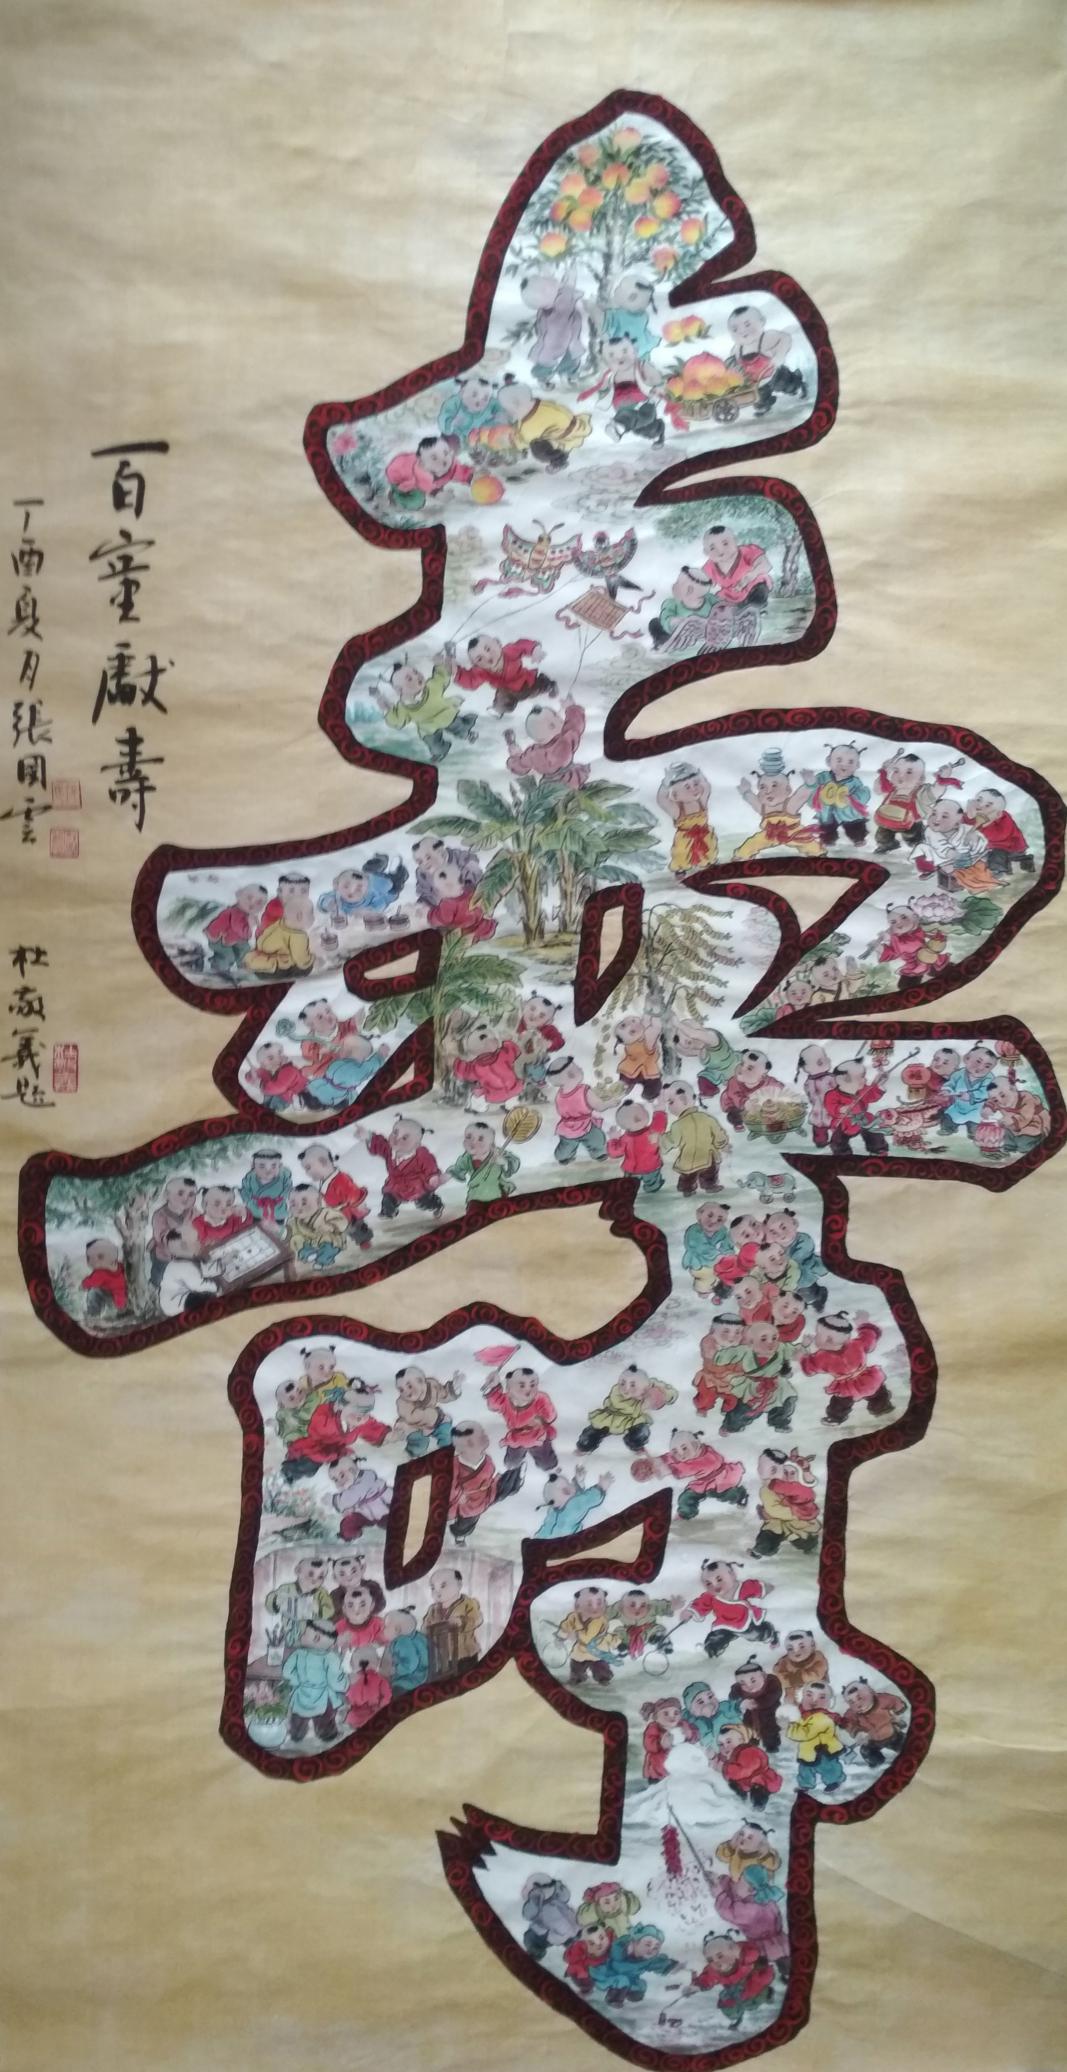 壽
百童獻壽
丁酉夏月張國雲
杜敬義題